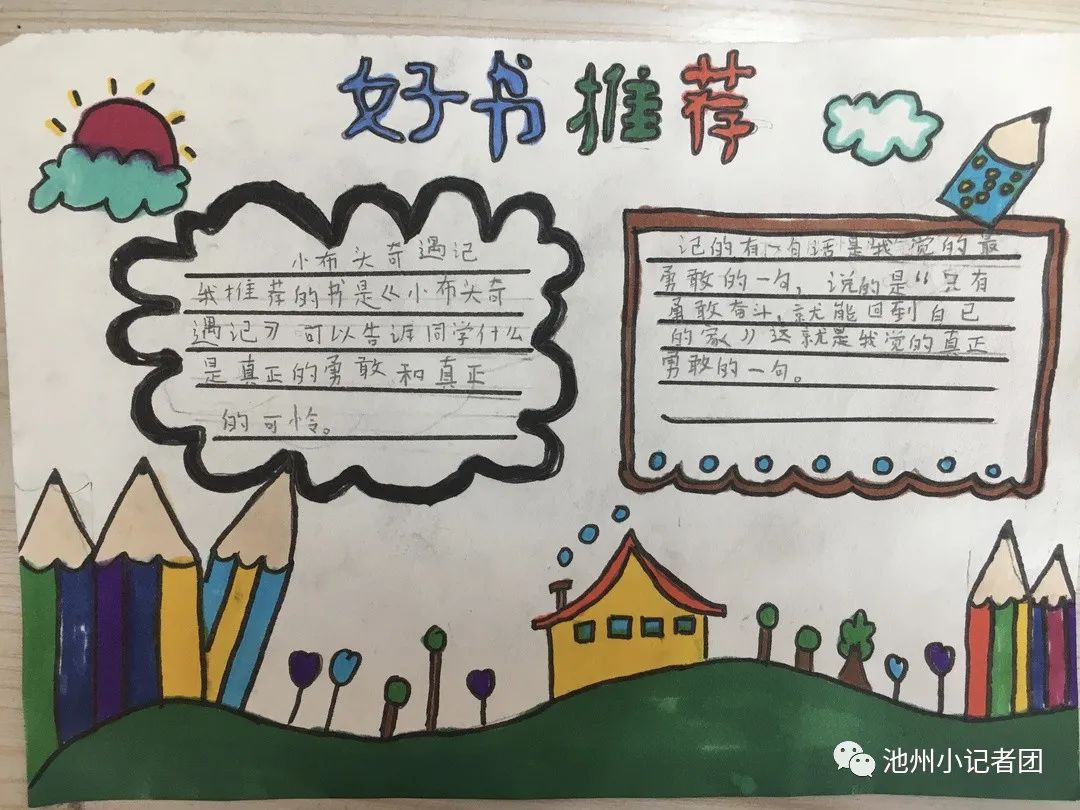 好书推荐
小布头奇遇记
我推荐的书是《小布头奇
遇记》可以告诉同学什么
是真正的勇敢和真正
的可怜。
记的有一句话是我觉的最
勇敢的一句，说的是“只有
勇敢奋斗，就能回到自己
的家》这就是我觉的真正
勇敢的一句。
池州小记者团